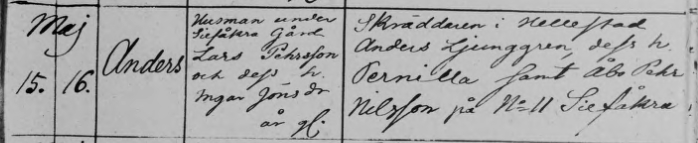 Maj
15. 16.
Anders
Husman under
Siefåkra Gård
Lars Pehrsson
och dess h.
Ingar Jöns dr
år gl.
Skräddaren i Hellestad
Anders Ljunggren, dess h.
Pernilla samt Åbo Pehr
Nilsson på No 11 Siefåkra